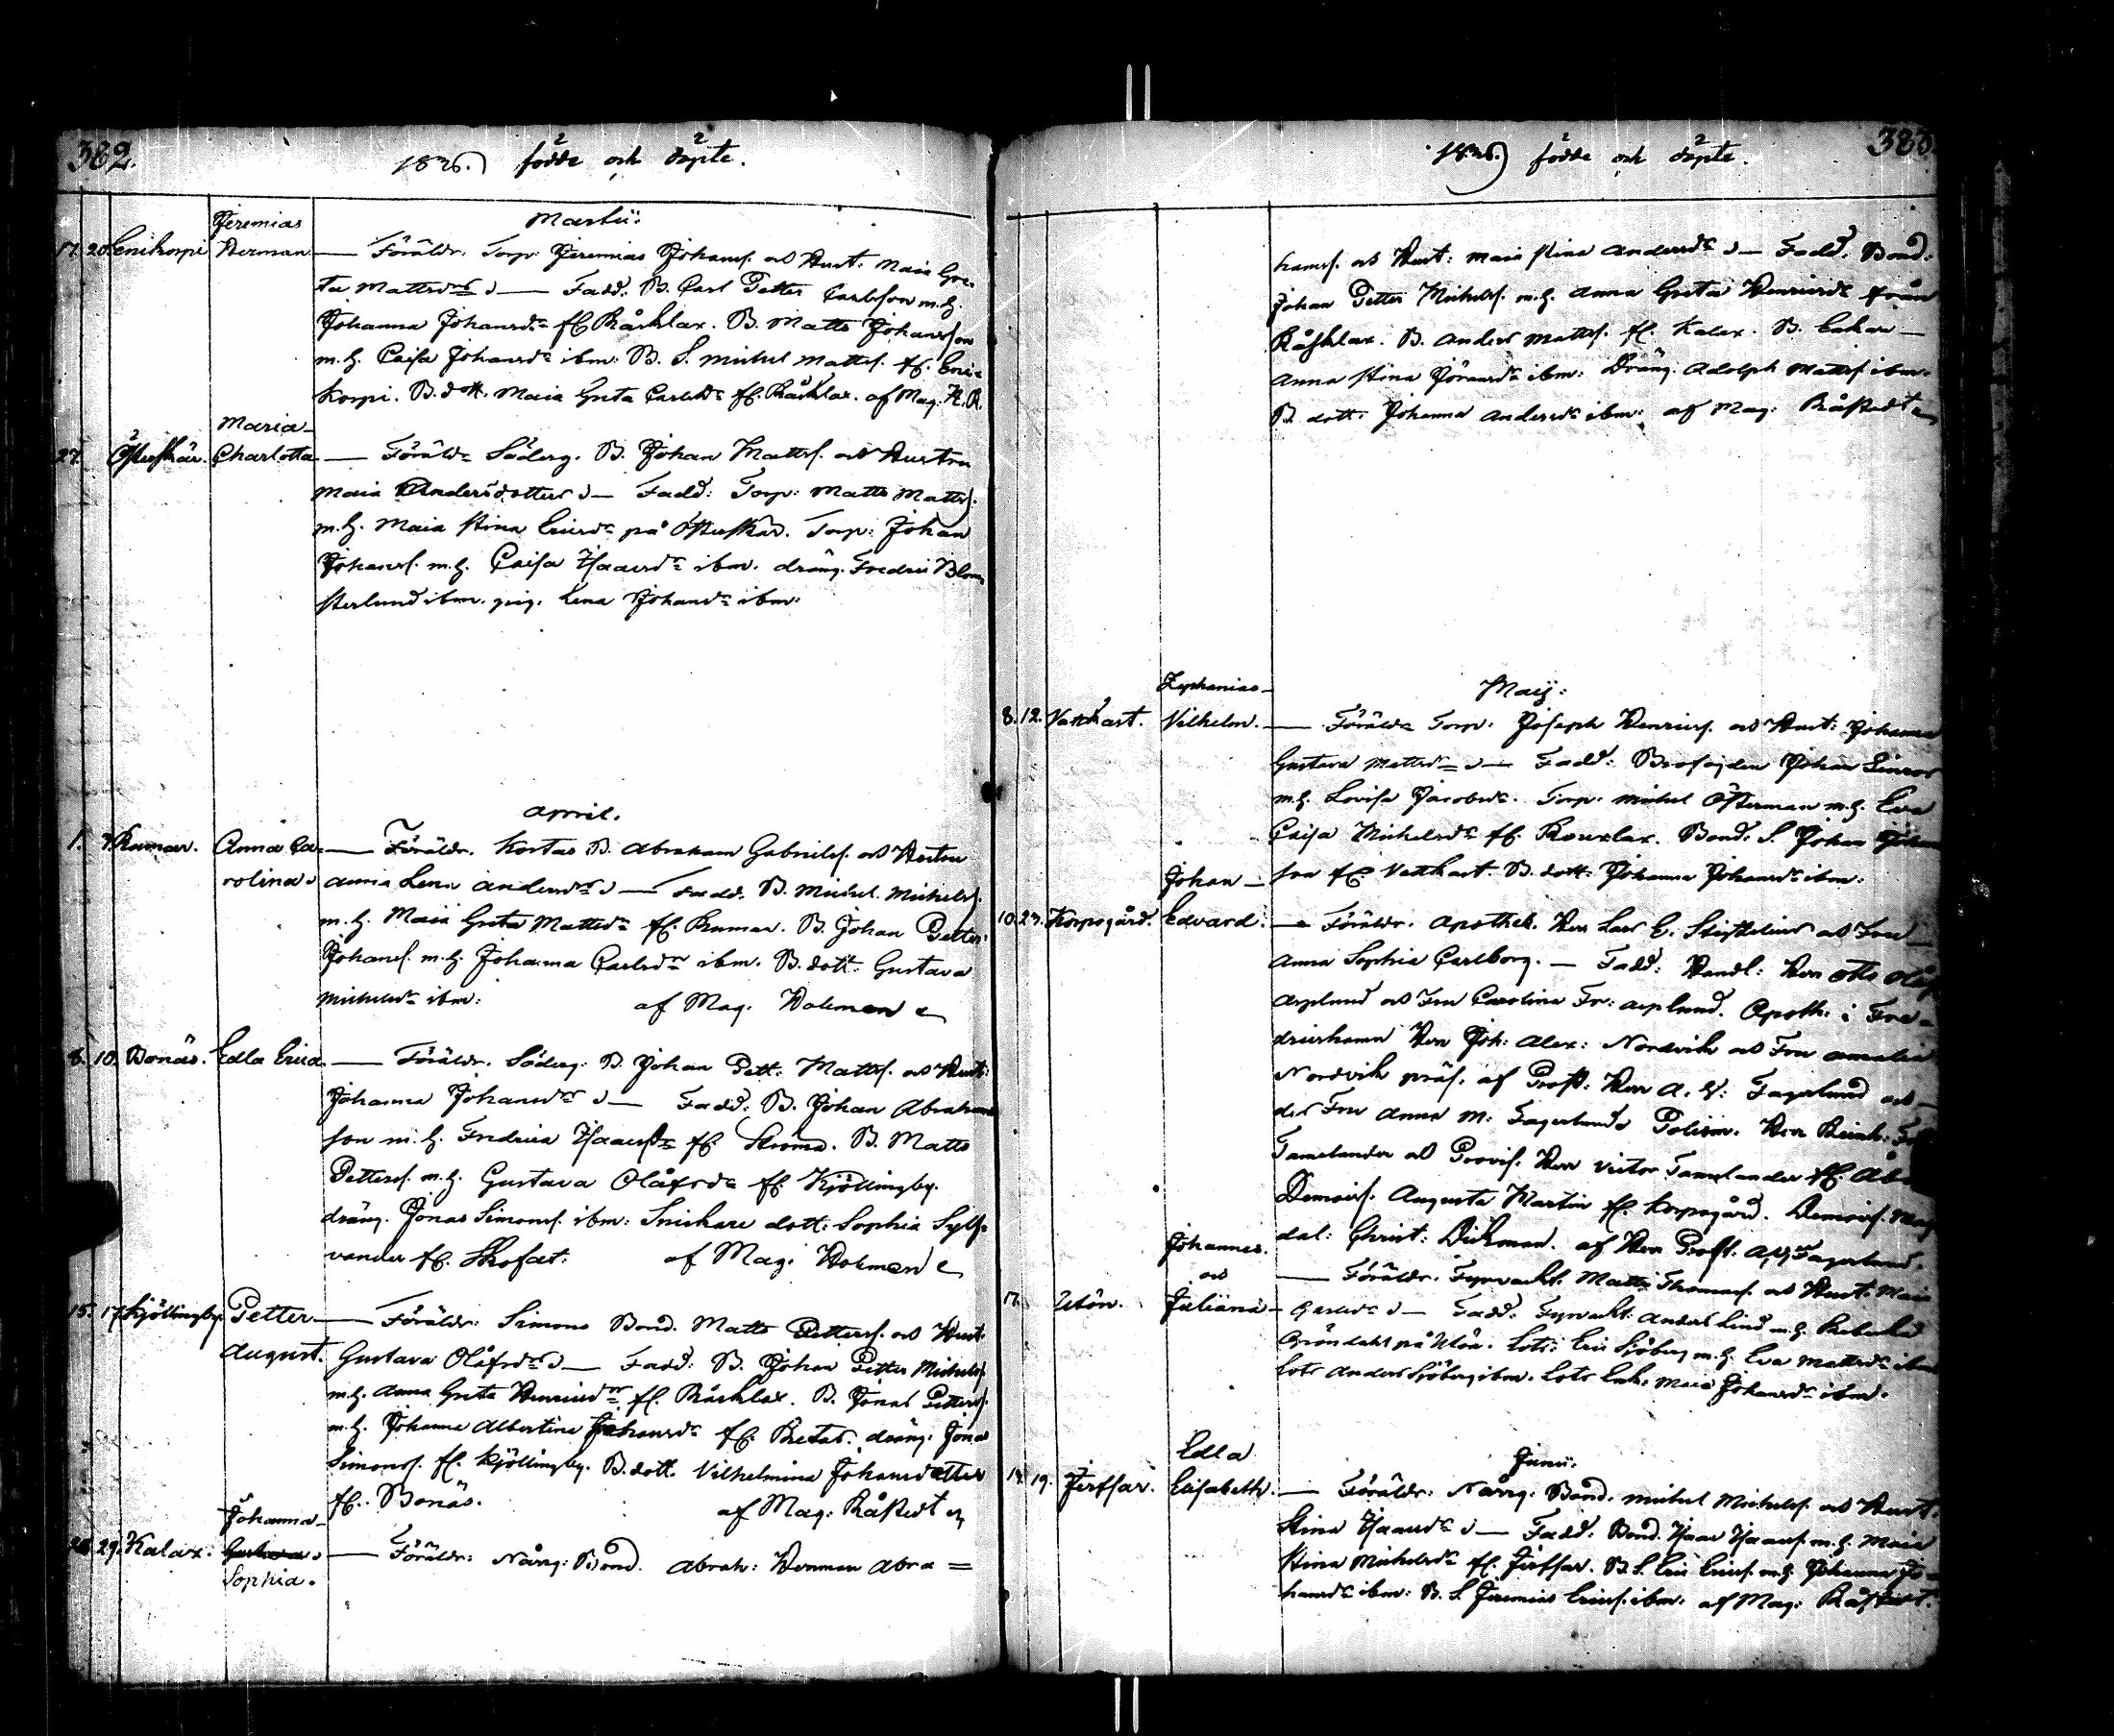 382.
1836. födde och döpte.
Martii:
Jeremias
17. 20. Enikorpi Herman — Föräldr. Torp. Jeremias Johanss. och Hust: Maia Gre-
ta Mattsdr — Fadd: B. Carl Petter Carlsson m.h.
Johanna Johansdr fr. Råsklax. B. Matts Johansson
m.h. Caisa Johansdr ibm: B. S. Michel Mattss. fr. Eni-
korpi. B. dott. Maia Greta Carlsdr fr. Råsklax. af Mag. K. R.
Maria
27. Österskär. Charlotta — Föräldr Söderg. B. Johan Mattss. och Hustru
Maia Andersdotter — Fadd: Torp: Matts Mattss.
m.h. Maia Stina Ericsdr på Österskär. Torp: Johan
Johanss. m.h. Caisa Isaacsdr ibm. dräng. Fredric Blom-
sterlund ibm. pig. Lena Johansdr ibm:
April.
1. 3. Rumar. Anna Ca- — Föräldr. Kortas B. Abraham Gabrielss. och Hustru
rolina. Anna Lena Andersdr — Fadd. B. Michel Michelss.
m.h. Maia Greta Mattsdr fr. Rumar. B. Johan Petter
Johanss. m.h. Johanna Carlsdr ibm. B. dott: Gustava
Michelsdr ibm: af Mag. Holmen
8. 10. Bonäs. Edla Erica — Föräldr. Söderg: B. Johan Pett. Mattss. och Hust:
Johanna Johansdr — Fadd: B. Johan Abraham-
son m.h. Fredrica Isaacsdr fr. Ströma. B. Matts
Petterss. m.h. Gustava Olåfsdr fr. Kjöllingby.
dräng. Jonas Simonss. ibm: Snickare dott: Sophia Sylf-
vander fr. Skofat: af Mag. Holmen
15. 17. Kjöllingby. Petter — Föräldr: Simons Bond. Matts Petterss. och Hust.
August. Gustava Olåfsdr — Fadd: B. Johan Petter Michelss.
m.h. Anna Greta Henricsdr fr. Råsklax. B. Jonas Petterss.
m.h. Johanna Albertina Johansdr fr. Retais. dräng: Jonas
Simonss. fr. Kjöllingby. B. dott. Vilhelmina Johansdotter
fr. Bonäs. af Mag: Råstedt
Johanna
28. 29. Kalax. Gustava — Föräldr: Nårrg: Bond. Abrah: Herman Abra=
Sophia.
383.
1836. födde och döpte.
hamss. och Hust: Maia Stina Andersdr — Fadd. Bond.
Johan Petter Michelss. m.h. Anna Greta Henricsdr från
Råsklax. B. Anders Mattss. fr. Kalax. B. Enkan
Anna Stina Jöransdr ibm: Dräng. Adolph Mattss. ibm.
B. dott: Johanna Andersdr ibm: af Mag: Råstedt
Maij:
Zephanias
8. 12. Vattkast. Vilhelm. — Föräldr Torp: Joseph Henricss. och Hust: Johanna
Gustava Mattsdr — Fadd: Brofogden Johan Linros
m.h. Lovisa Jacobsdr. Torp. Michel Österman m.h. Eva
Caisa Michelsdr fr. Rouslax. Bond. S. Johan Johan
son fr. Vattkast. B. dott: Johanna Johansdr ibm:
Johan
10. 23. Korpogård. Edvard. — Föräldr. Apothek. Herr Lars E. Stigzelius och Fru
Anna Sophia Carlborg. — Fadd: Handl: Herr Otto Olåf
Asplund och Fru Carolina Fr: Asplund. Apoth. i Fre-
drikshamn Herr Joh: Alex: Nordvik och Fru Amalia
Nordvik präs. af Prost: Herr A. W: Fagerlund och
des Fru Anna M: Fagerlund. Polism. Herr Reinh:
Tamelander och Provis. Herr Victor Tamelander fr. Åbo
Demois. Augusta Martin fr. Korpogård. Demois. Mag
dal: Christ: Dickman. af Herr Prost. A. W. Fagerlund.
Johannes.
och — Föräldr. Fyrvakt. Matts Thomass. och Hust. Maia
17. Utön. Juliana — Carlsdr — Fadd: Fyrvakt: Anders Lind m.h. Rebecka
Gröndahl på Utön. Lots: Eric Sjöberg m.h. Eva Mattsdr ibm
Lots Anders Sjöberg ibm. Lots Enk. Maia Johansdr ibm.
Junii.
Edla
14. 19. Jerssar. Elisabeth. — Föräldr: Nårrg. Bond. Michel Michelss. och Hust.
Stina Isaacsdr — Fadd: Bond. Isaac Isaacss. m.h. Maia
Stina Michelsdr fr. Jerssar. B. S. Eric Ericss. m.h. Johanna Jo-
hansdr ibm: B. S. Jeremias Ericss. ibm. af Mag: Råstedt.